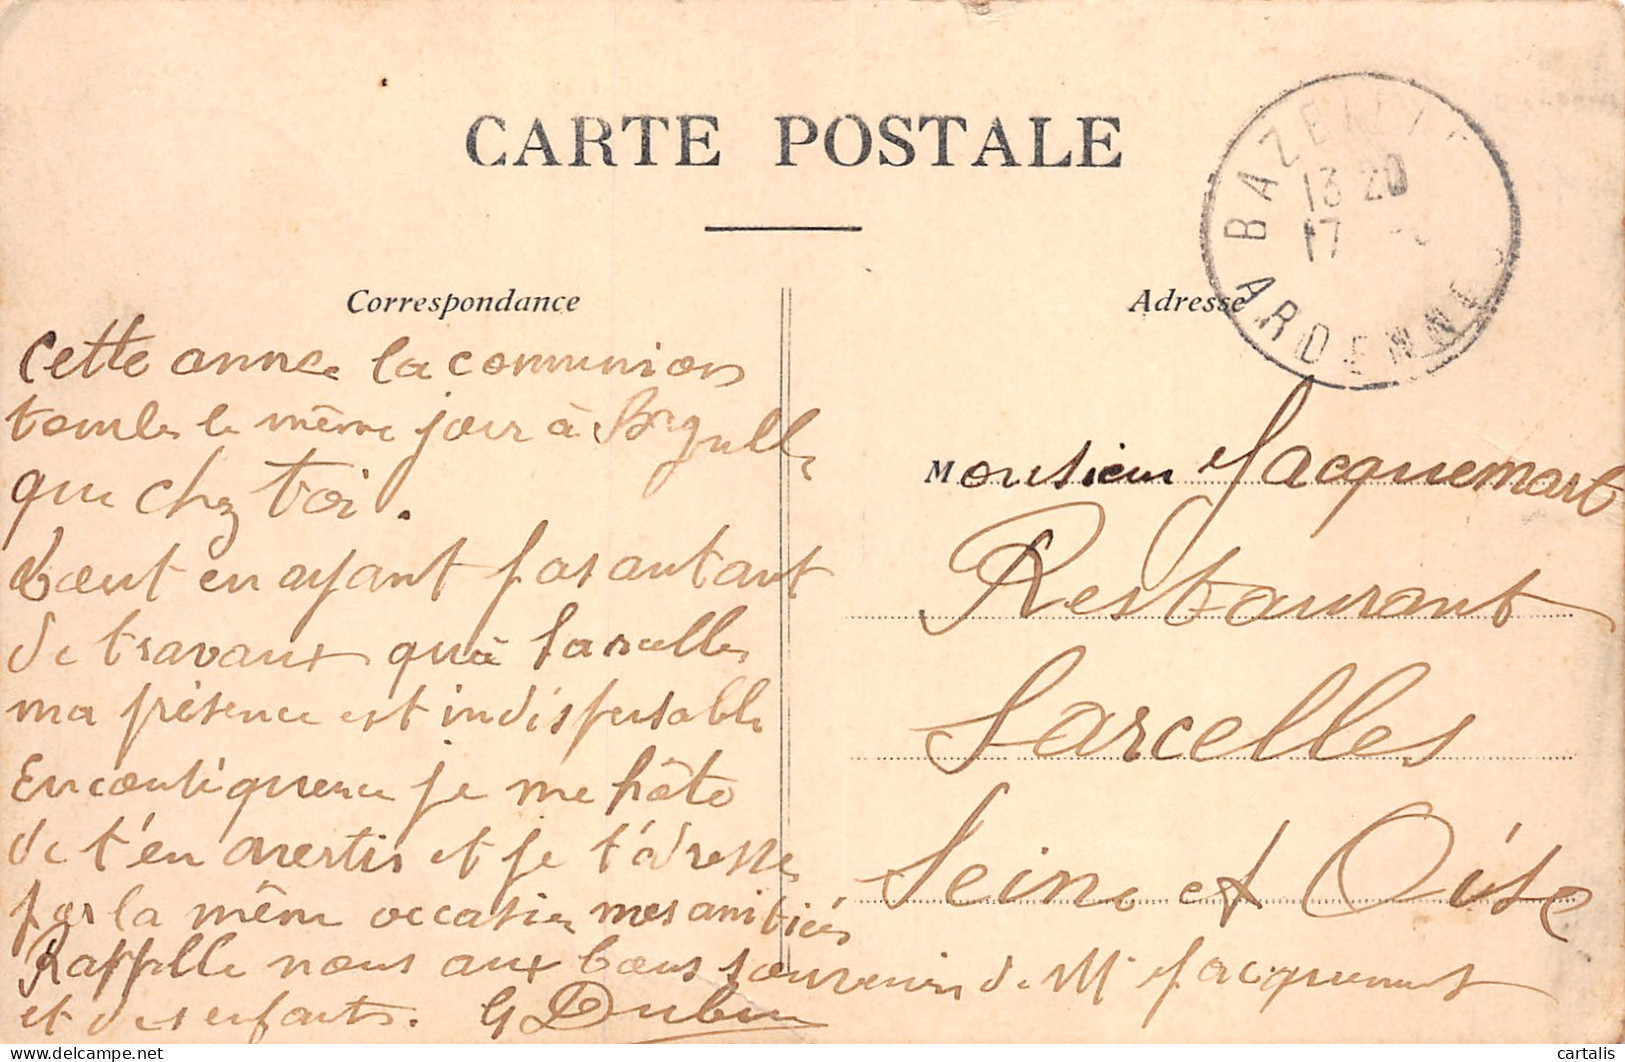 CARTE POSTALE
BAZEILLES
13 20
17
ARDENNES
Correspondance
Adresse
Cette année la communion
tombe le même jour à
que chez toi.
Tout en ayant pas autant
de travaux qu'à Sarcelles
ma présence est indispensable
En conséquence je me hâte
de t'en avertir et je t'adresse
par la même occasion mes amitiés
Rappelle nous aux bons souvenirs de Mme Jacquemart
et des enfants. G
Monsieur Jacquemart
Restaurant
Sarcelles
Seine et Oise
cartalis